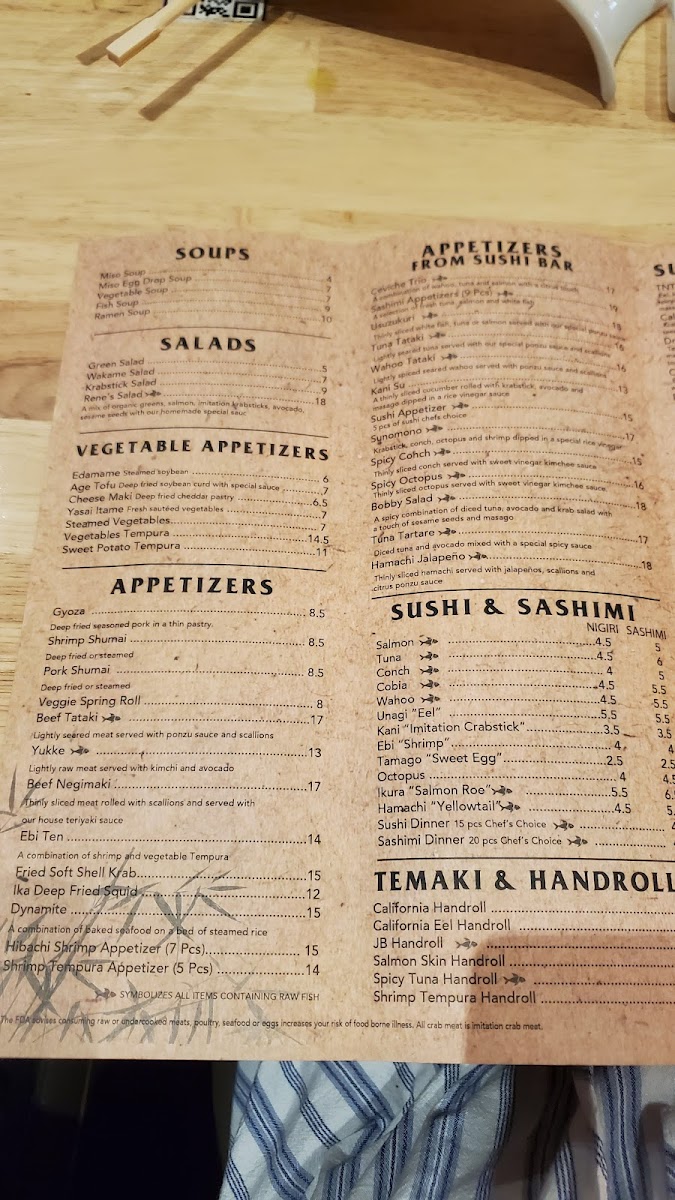 SOUPS
Miso Soup 4
Miso Egg Drop Soup 7
Vegetable Soup 7
Fish Soup 9
Ramen Soup 10
SALADS
Green Salad 5
Wakame Salad 7
Krabstick Salad 9
Rene's Salad 18
A mix of organic greens, salmon, imitation krabsticks, avocado,
sesame seeds with our homemade special sauc
VEGETABLE APPETIZERS
Edamame Steamed soybean 6
Age Tofu Deep fried soybean curd with special sauce 7
Cheese Maki Deep fried cheddar pastry 6.5
Yasai Itame Fresh sautéed vegetables 7
Steamed Vegetables 7
Vegetables Tempura 14.5
Sweet Potato Tempura 11
APPETIZERS
Gyoza 8.5
Deep fried seasoned pork in a thin pastry.
Shrimp Shumai 8.5
Deep fried or steamed
Pork Shumai 8.5
Deep fried or steamed
Veggie Spring Roll 8
Beef Tataki 17
Lightly seared meat served with ponzu sauce and scallions
Yukke 13
Lightly raw meat served with kimchi and avocado
Beef Negimaki 17
Thinly sliced meat rolled with scallions and served with
our house teriyaki sauce
Ebi Ten 14
A combination of shrimp and vegetable Tempura
Fried Soft Shell Krab 15
Ika Deep Fried Squid 12
Dynamite 15
A combination of baked seafood on a bed of steamed rice
Hibachi Shrimp Appetizer (7 Pcs) 15
Shrimp Tempura Appetizer (5 Pcs) 14
SYMBOLIZES ALL ITEMS CONTAINING RAW FISH
The FDA advises consuming raw or undercooked meats, poultry, seafood or eggs increases your risk of food borne illness. All crab meat is imitation crab meat.
APPETIZERS
FROM SUSHI BAR
Ceviche Trio 17
A combination of salmon, tuna and salmon with a citrus
Sashimi Appetizers (9 Pcs) 19
A selection of fresh tuna, salmon and white fish
Usuzukuri 18
Thinly sliced white fish, tuna or salmon served with our special ponzu
Tuna Tataki 16
Lightly seared tuna served with our special ponzu sauce and scallions
Wahoo Tataki 16
Lightly spiced seared wahoo served with ponzu sauce and scallions
Kani Su 13
A thinly sliced cucumber rolled with krabstick, avocado and
masago dipped in a rice vinegar sauce
Sushi Appetizer 15
5 pcs of sushi chefs choice
Synomono 17
Krabstick, conch, octopus and shrimp dipped in a special rice vinegar
Spicy Cohch 15
Thinly sliced conch served with sweet vinegar kimchee sauce
Spicy Octopus 16
Thinly sliced octopus served with sweet vinegar kimchee sauce
Bobby Salad 18
A spicy combination of diced tuna, avocado and krab salad with
a touch of sesame seeds and masago
Tuna Tartare 17
Diced tuna and avocado mixed with a special spicy sauce
Hamachi Jalapeño 18
Thinly sliced hamachi served with jalapeños, scallions and
citrus ponzu sauce
SUSHI & SASHIMI
NIGIRI SASHIMI
Salmon 4.5 5
Tuna 4.5 6
Conch 4 5
Cobia 4.5 5.5
Wahoo 4.5 5.5
Unagi "Eel" 5.5 5.5
Kani "Imitation Crabstick" 3.5 3.5
Ebi "Shrimp" 4 4
Tamago "Sweet Egg" 2.5 2.5
Octopus 4 4.5
Ikura "Salmon Roe" 5.5 6.
Hamachi "Yellowtail" 4.5 5.
Sushi Dinner 15 pcs Chef's Choice
Sashimi Dinner 20 pcs Chef's Choice
TEMAKI & HANDROLL
California Handroll
California Eel Handroll
JB Handroll
Salmon Skin Handroll
Spicy Tuna Handroll
Shrimp Tempura Handroll
SU
TNT